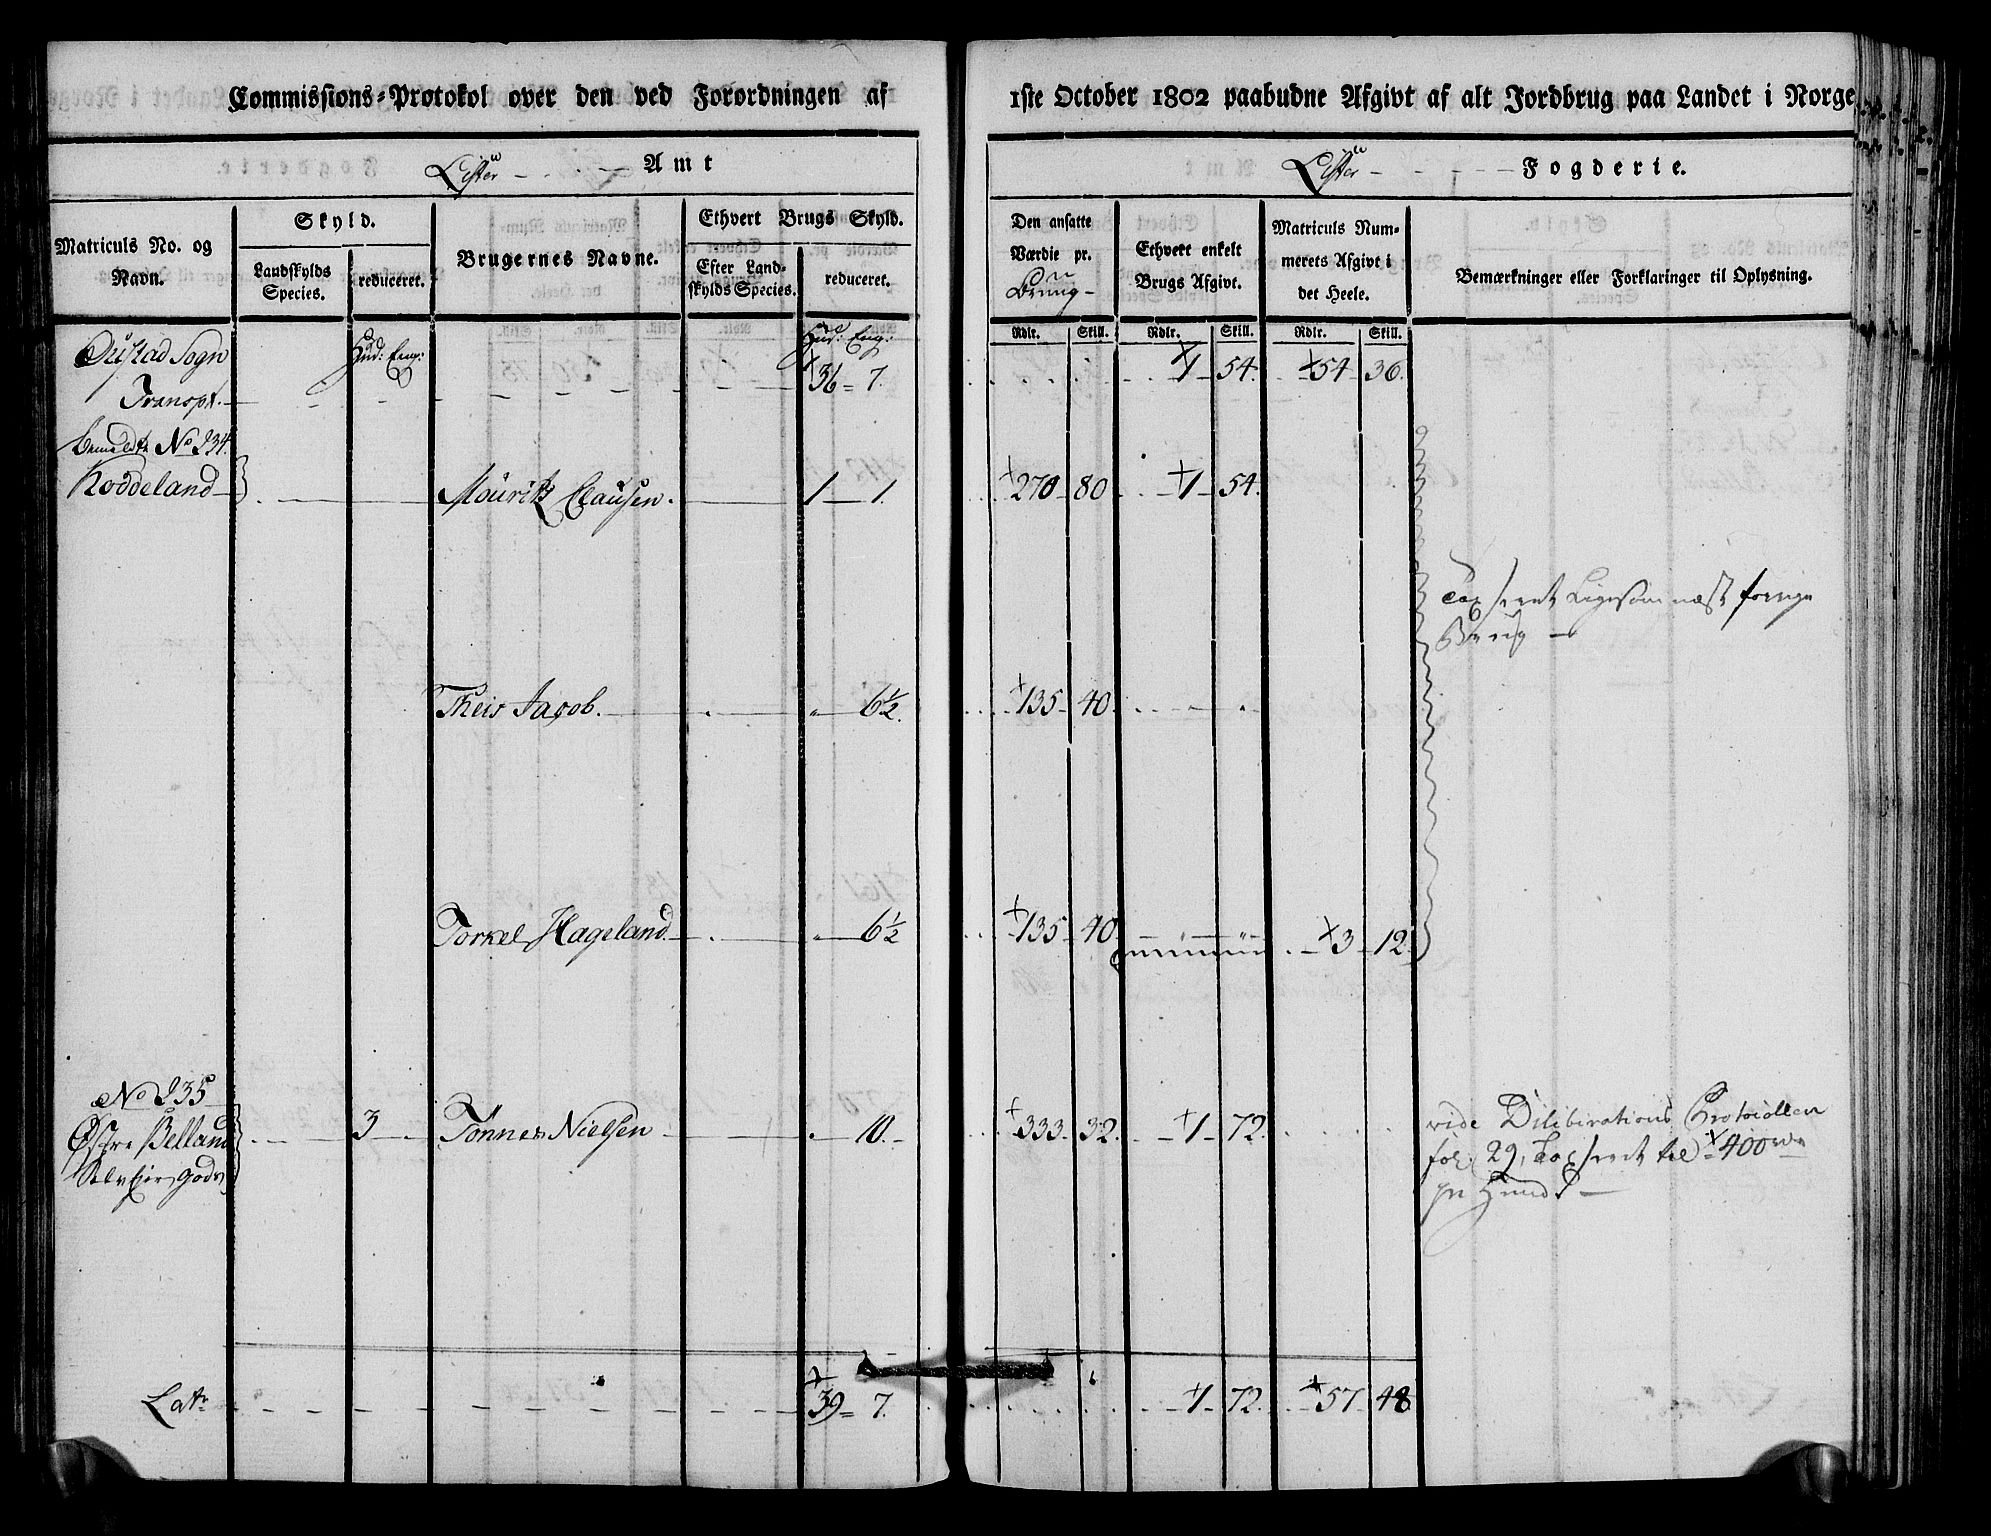 Commissions-Protokol over den ved Forordningen af 1ste October 1802 paabudne Afgivt af alt Jordbrug paa Landet i Norge
Lister Amt
Lister Fogderie.
Matriculs No. og Navn.
Skyld.
Landskylds Species.
reduceret.
Brugernes Navne.
Ethvert Brugs Skyld.
Efter Landskylds Species.
reduceret.
Den ansatte Værdie pr. Bruug
Ethvert enkelt Brugs Afgivt.
Matriculs Nummerets Afgivt i det Heele.
Bemærkninger eller Forklaringer til Oplysning.
Rdlr. Skill. Rdlr. Skill. Rdlr. Skill.
Sogn Hud: Eng: Hud: Eng:
Transpt. 36 7. 1 54. 54 36.
bemeldte No 234.
Roddeland Mouritz Clausen. 1 1. 270 80 1 54.
Taxseret Ligesom næst forrige
Brug
Theis Jacob. " 6½. 135 40.
Torkel Hageland. " 6½ 135 40. 3 12.
No 235
Østre Belland 3 Tønnes Nielsen 10. 333 32. 1 72.
Selvejer gods
vide Deliberations Protocollen
fol: 29, Taxseret til 400 rdr
pr Huud
Latr 39 7. 1 72. 57 48